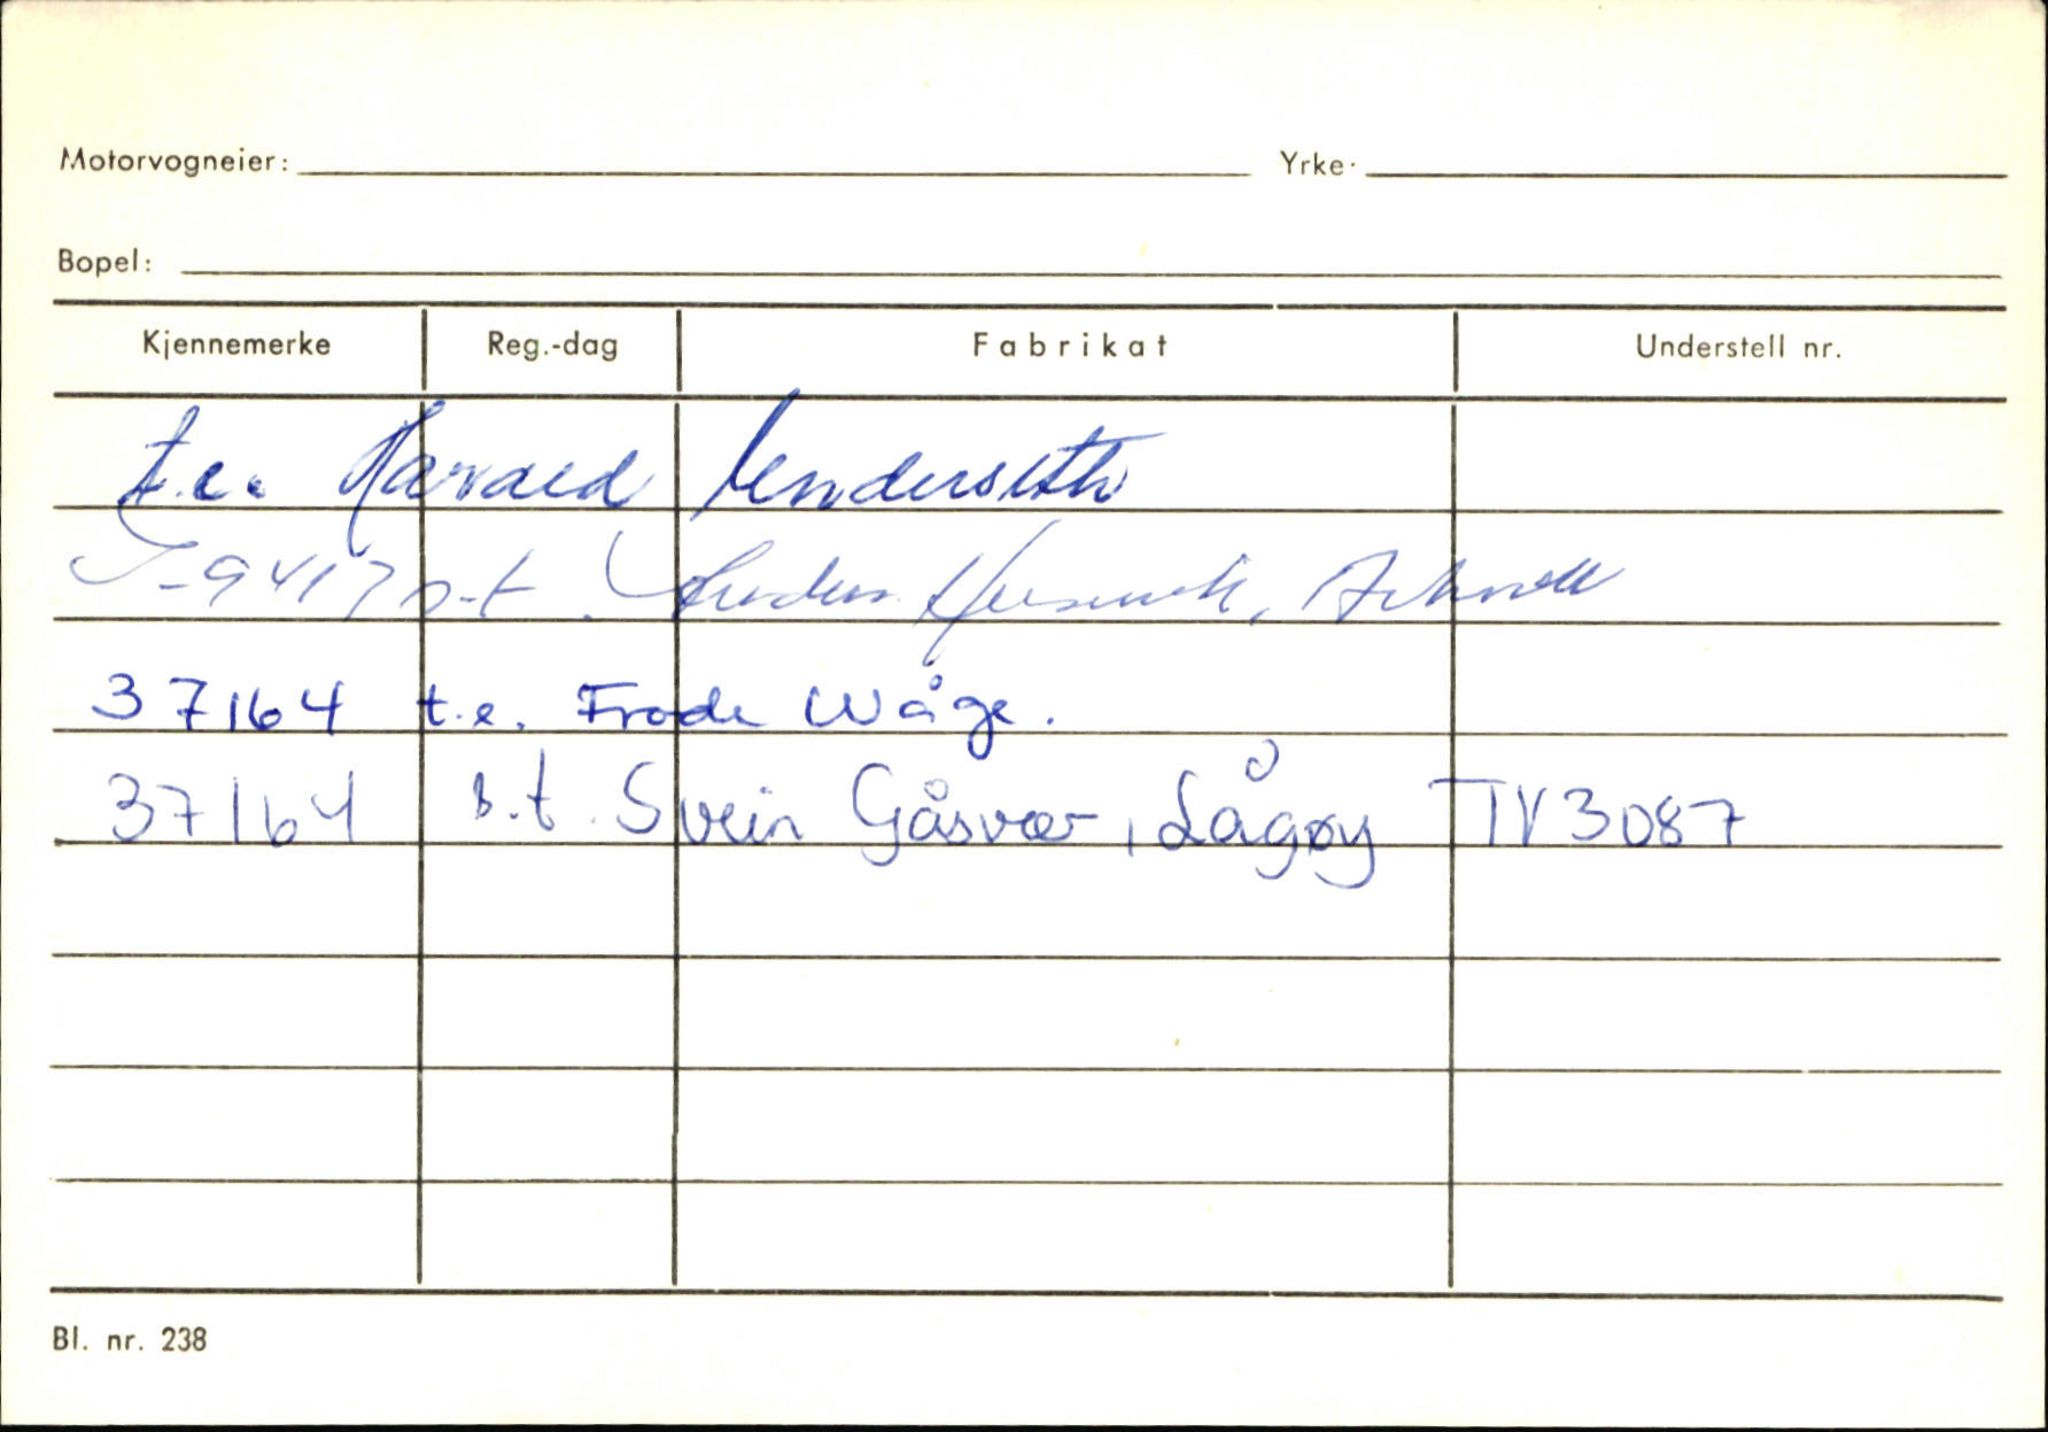 Motorvogneier: Yrke.
Bopel:
Kjennemerke Reg.-dag Fabrikat Understell nr.
t.e. Harald
S-9417 n-t.
37164 t.e. Frode Wåge.
37164 b.t. Svein Gåsvær, Lågøy TV3087
Bl. nr. 238